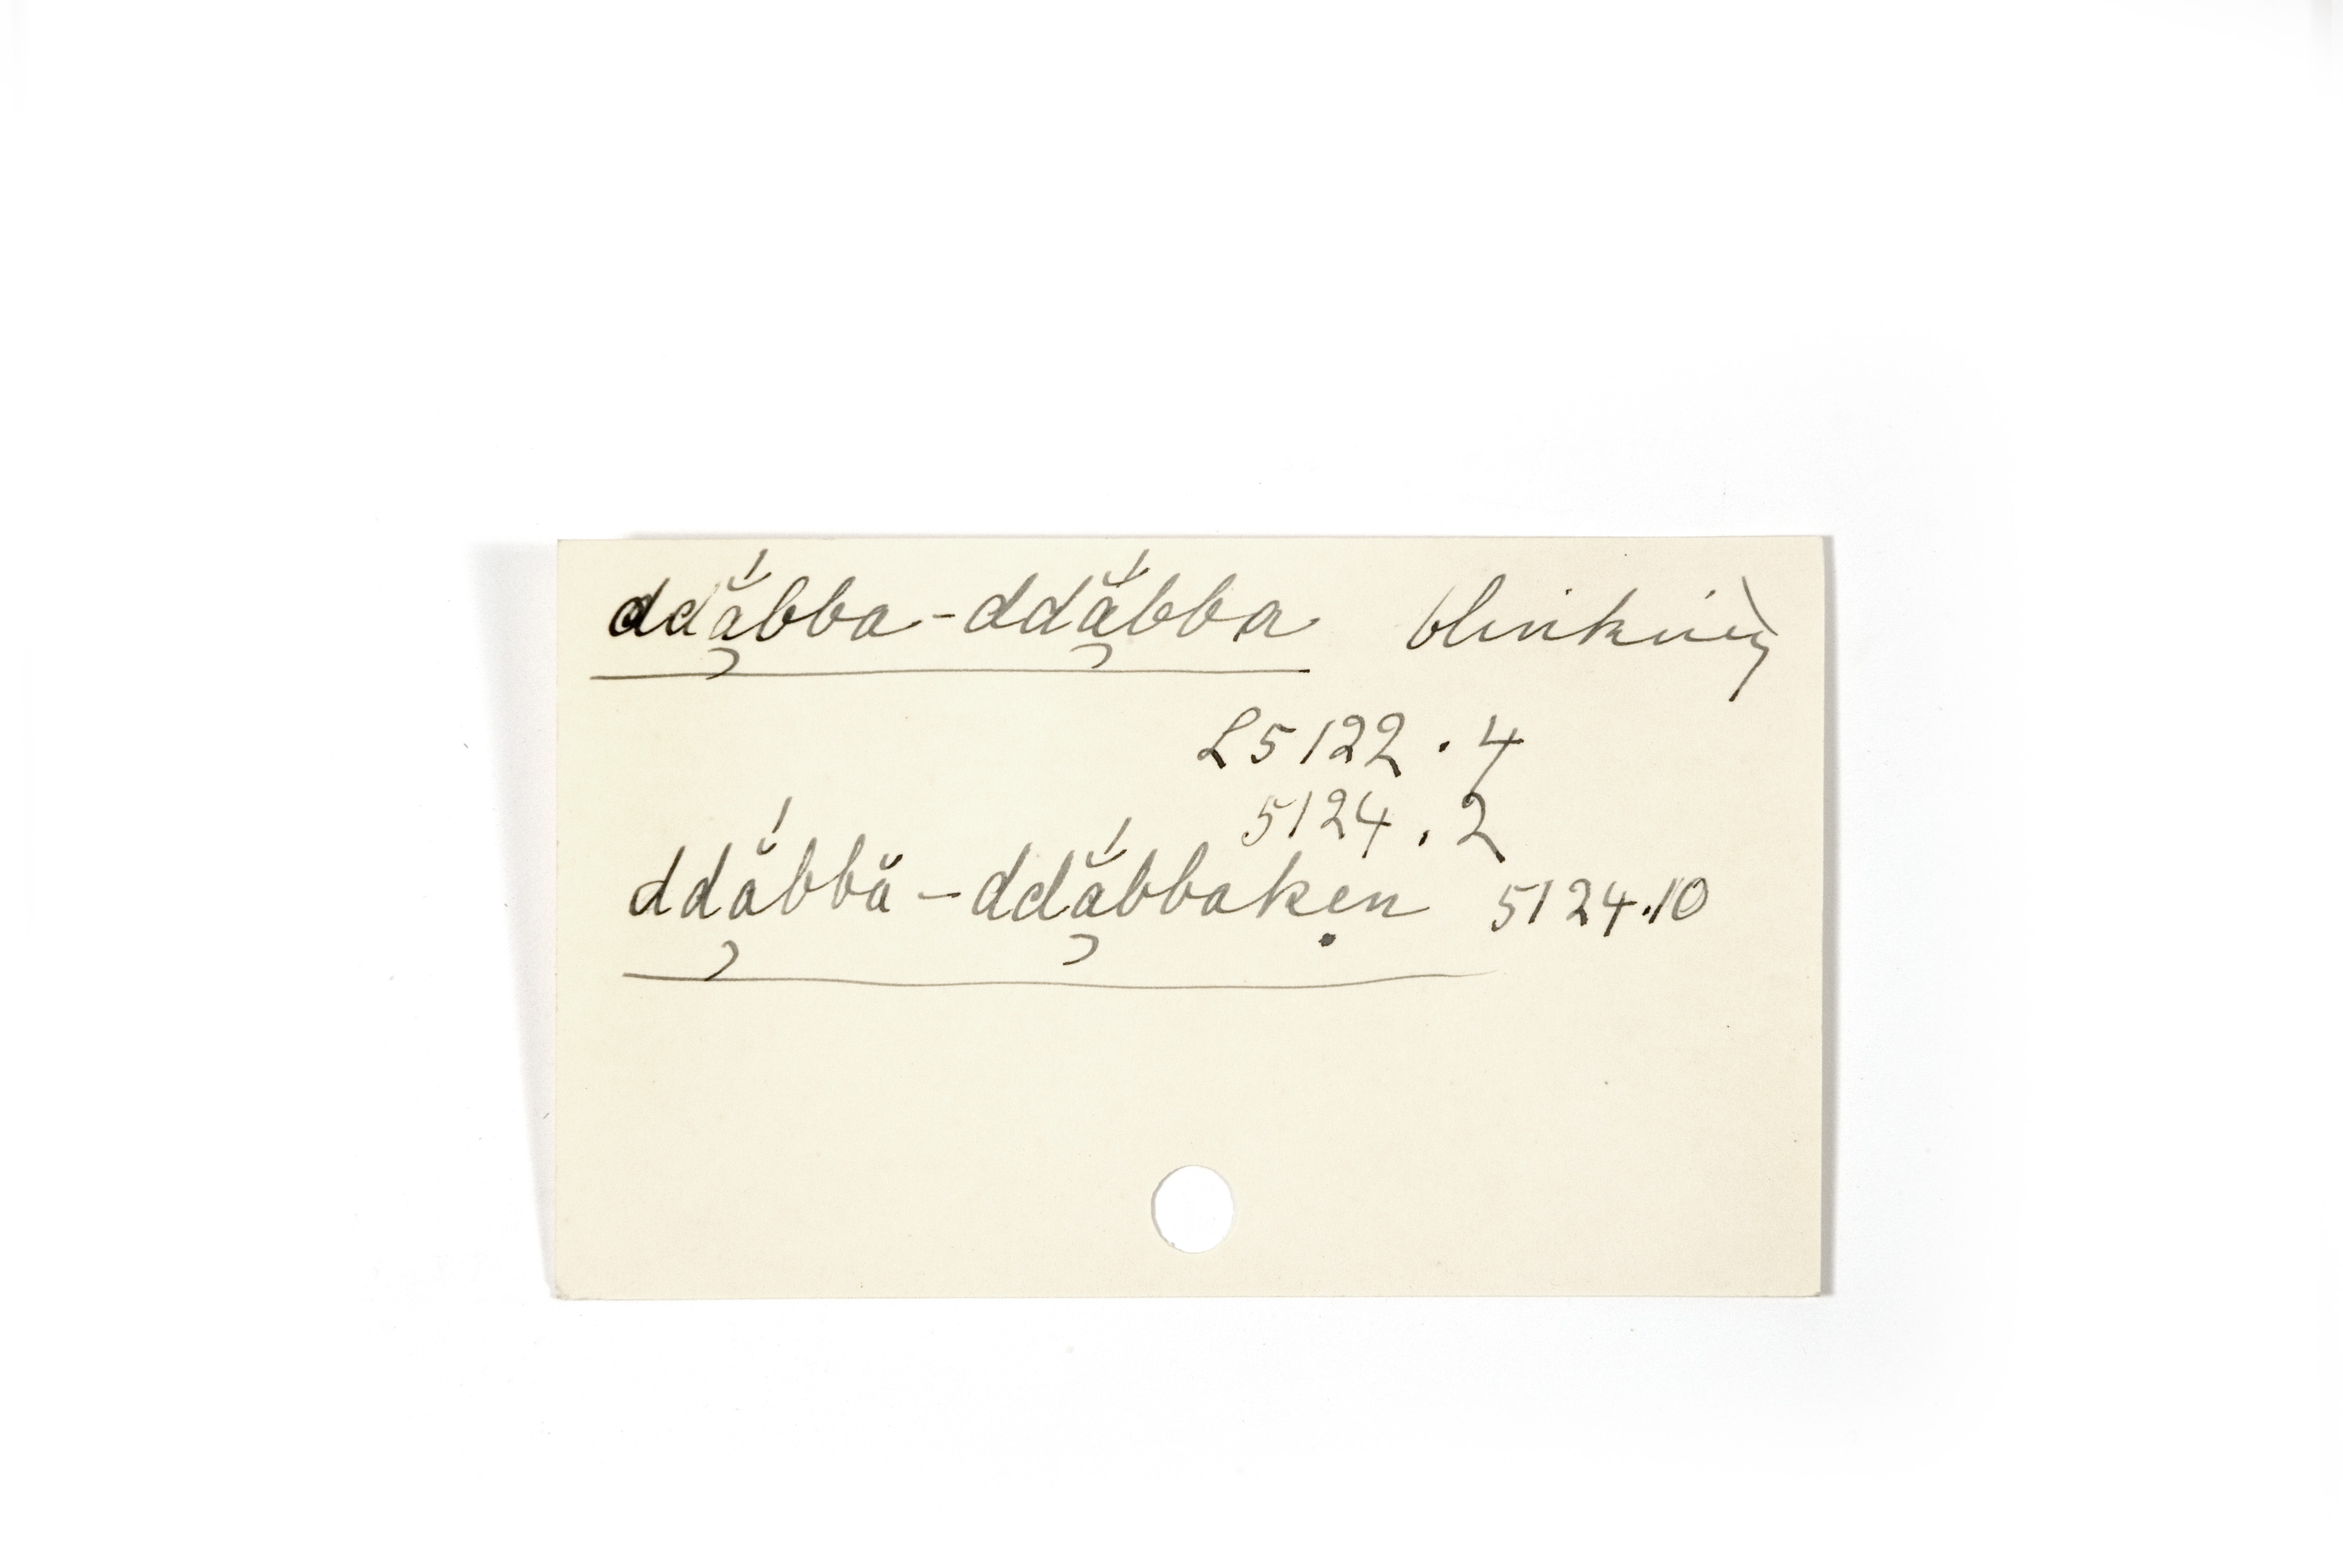 ddắ̦bba-ddắ̦bba blinking
L5122.4
5124.2
ddắ̦bbă-ddắ̦bbakẹn 5124.10